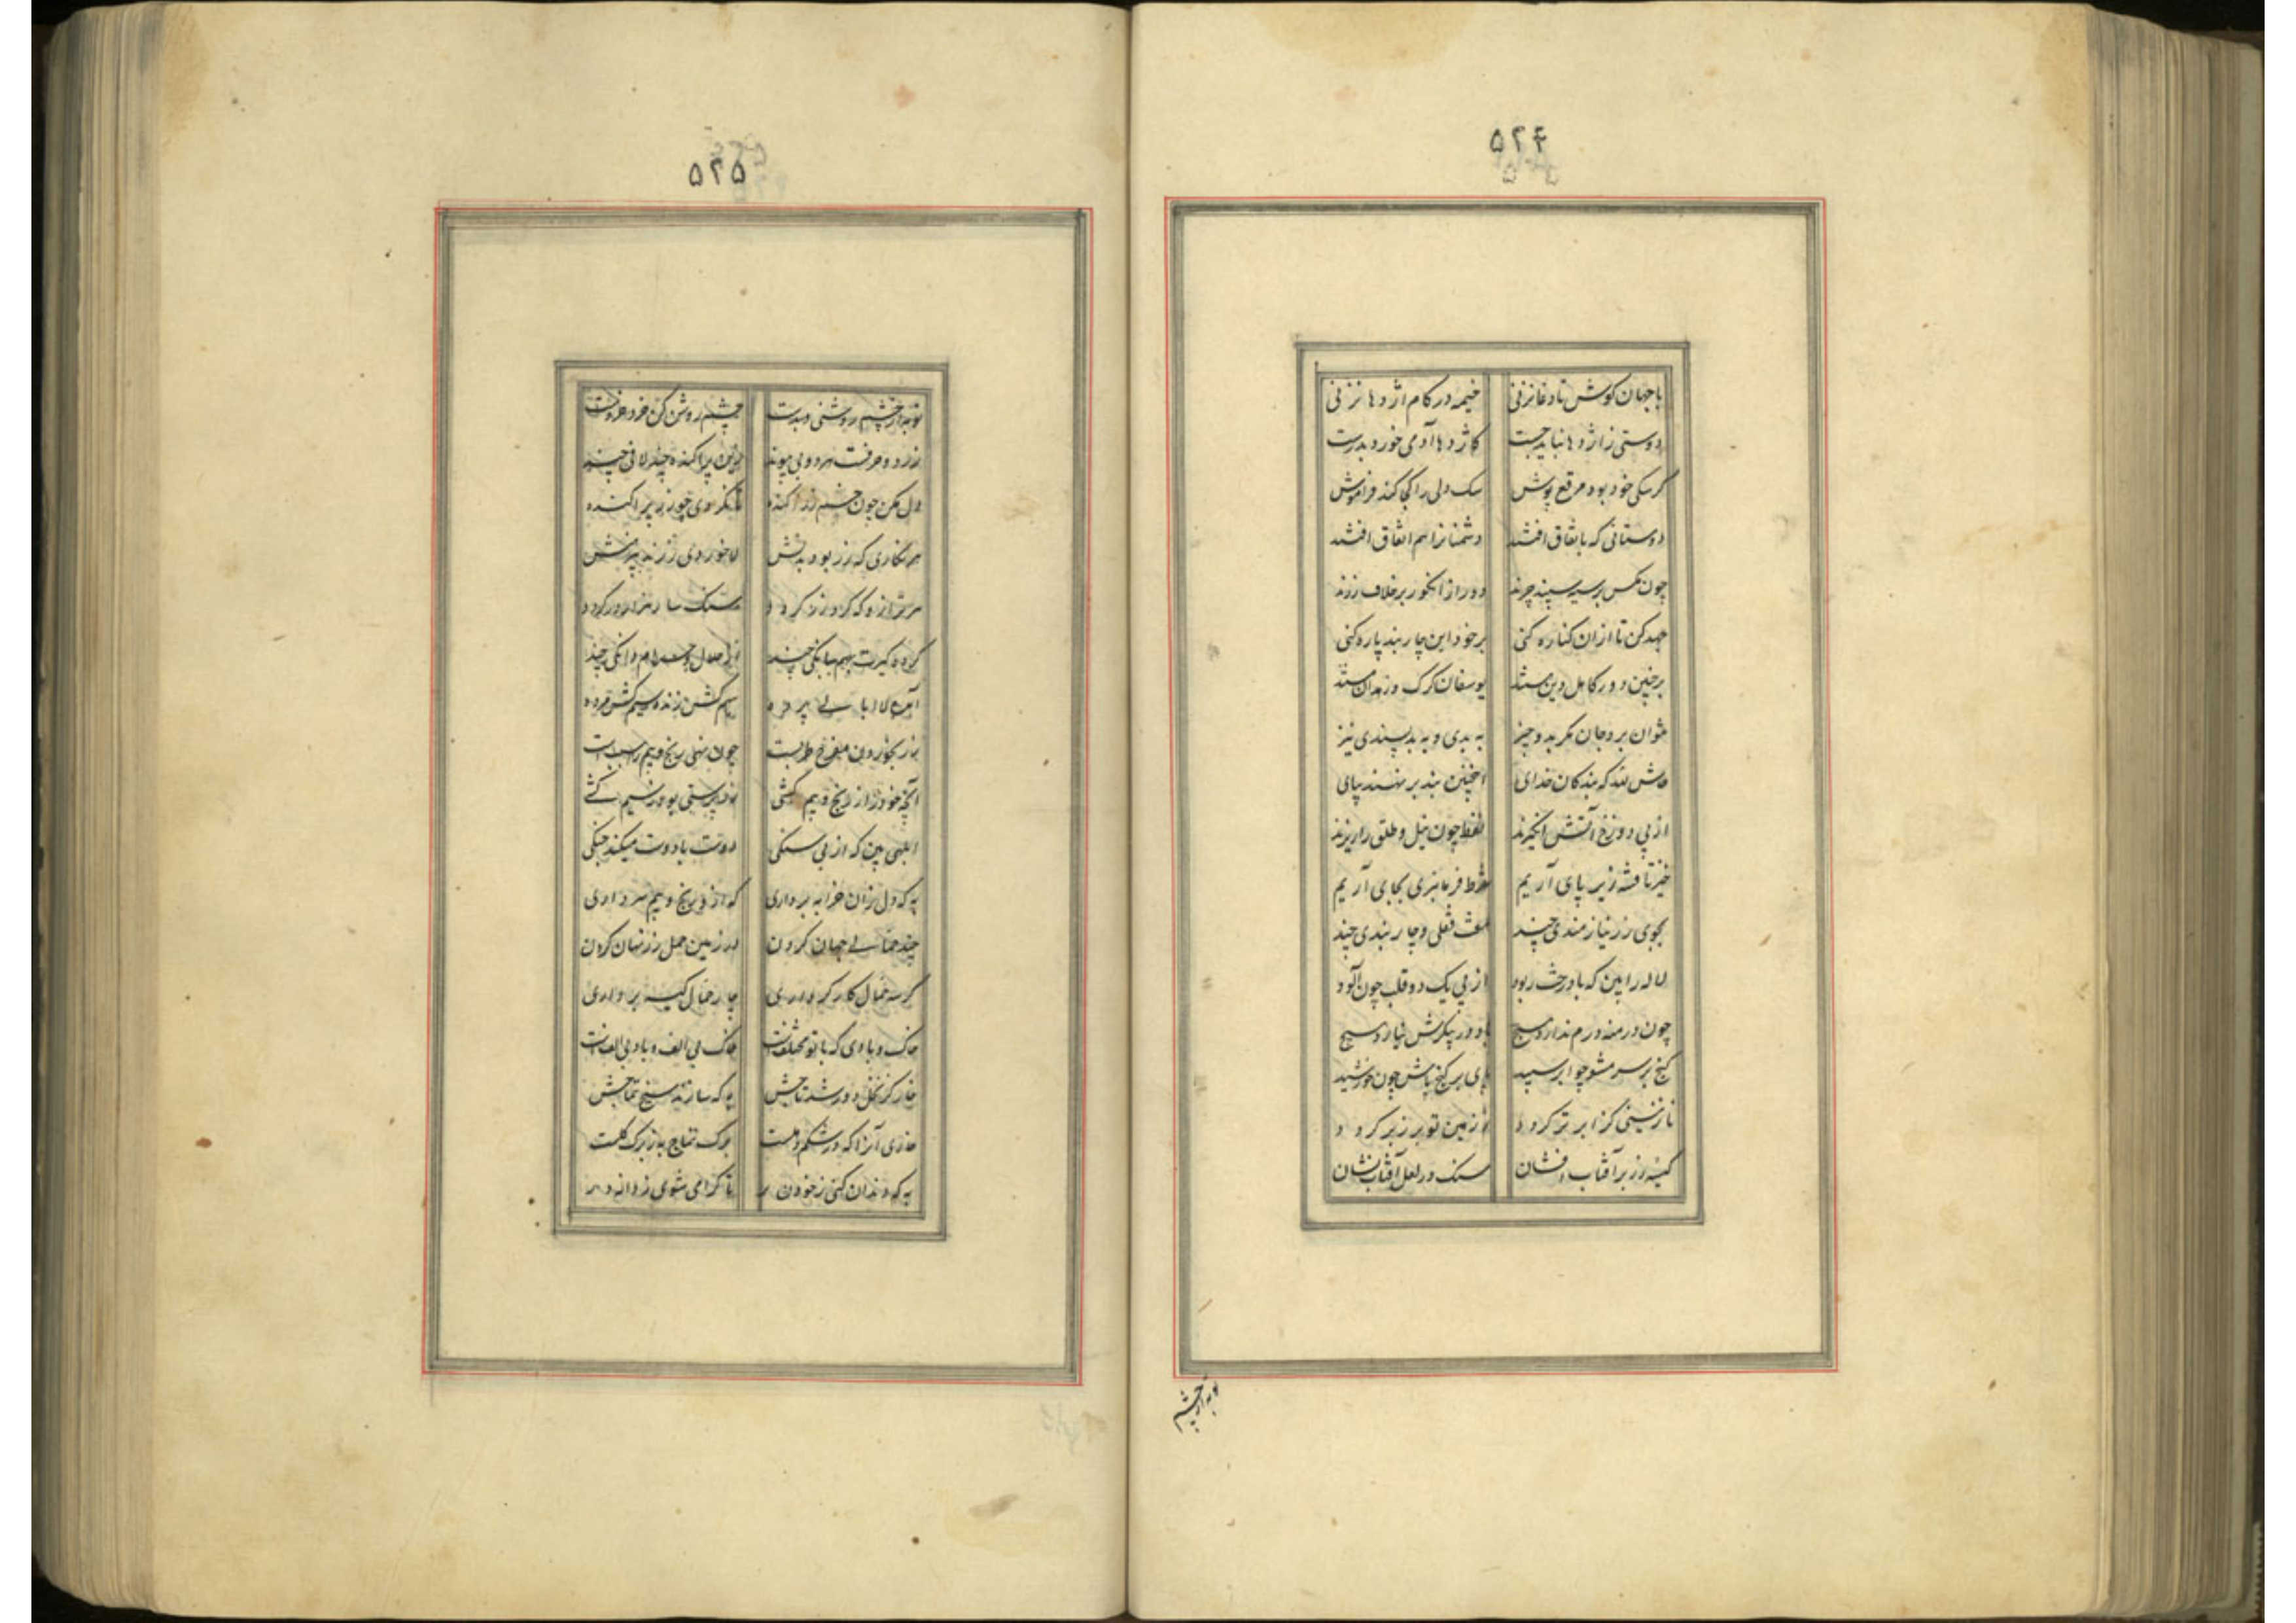 ۵۲۴
با جهان کوش تا دغا نزنی خیمه در کام اژدها نزنی
دوستی ز اژدها نباید جست کاژدها آدمی خورد بدرست
گر سگی خود بود مرقع پوش سگ دلی را کجا کند فراموش
دوستانی که با نفاق افتند دشمنانرا هم اتفاق افتند
چون مگس بر سیه سپید چرند دور از انگور بر خلاف رزند
جهد کن تا از ان کناره کنی بر خود این چار بند پاره کنی
بر چنین دور کاهل دین مستند یوسفان گرگ و زهدان مستند
نتوان برد جان مگر بدو چیز به بدی و به بد پسندی نیز
حاش لله که بندکان خدای اینچنین بند بر نهند بپای
از پی دوزخ آتش انگیزند نفط چون نیل و طلق را ریزند
خیز تا فتنه زیر پای آریم شرط فرمانبری بجای آریم
بجوی زر نیازمندی چند هفت قفلی و چار بندی چند
لاله را بین که باد رخت ربود از پی یک دو قلب چون آلود
چون درمنه درم ندارد هیچ باد در پیکرش نیارد پیچ
گنج بر سر مشو چو ابر سپید پای بر گنج باش چون خورشید
نازنینی کز ابر تر کردد از زمین تو بر زبر کردد
کیسه زر بر آفتاب افشان سنگ در لعل آفتاب نشان
تو به از چشم
۵۲۵
تو به از چشم روشنی و بدست چشم روشن کن خرد خردست
زر دو حرفست هر دو بی پیوند زین پراکنده چند لافی چند
دل مکن چون چشم زر آکنده تا نکردی چو زر پراکنده
هر نکاری که زر بود بدنش لاجوردی رزند پیرهنش
هر ترازو که کرد زر کردد سنگ سار هزار در کردد
کرده کیرت بهم ببانگی چند از حلال و حرام دانگی چند
آمده لا ابا لیی برده سیم کش زنده سیم کش مرده
زر بخوردن مفرح طربست چون نهی رنج و بیم را سببست
آنچه خود را از رنج و بیم کشی زر پرستی بود ز سیم کشی
ابلهی بین که از پی سنگی دوست با دوست میکند جنگی
به که دل زان خرابه برداری که ازو رنج و بیم سر داری
چند حمالی جهان کردن در زمین حمل زر نهان کردن
گر سه حمال کارگر داری چار حمال کیسه برداری
خاک و بادی که با تو مختلفست خاک بی الف و باد بی الفست
خار کز نخل دور شد تاجش به که سازند سیخ تتماجش
خازی آنرا که در شکم دهلست برگ تتماج به ز برگ گلست
به که دندان کنی ز خوردن پر تا گرامی شوی ز دانه در